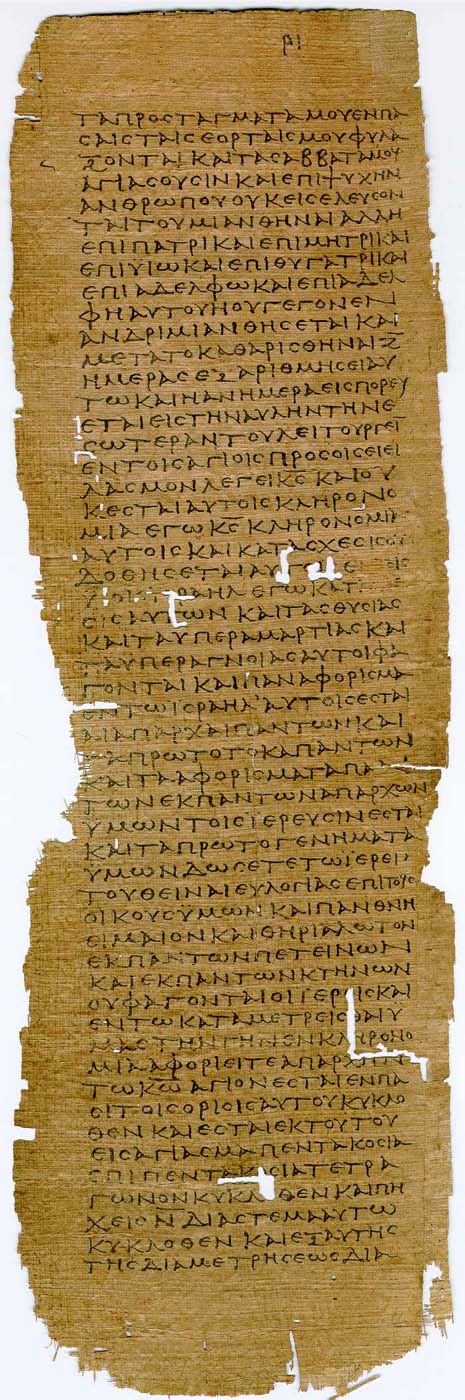 ΡΙ
ΤΑΠΡΟϹΤΑΓΜΑΤΑΜΟΥΕΝΠΑ
ϹΑΙϹΤΑΙϹΕΟΡΤΑΙϹΜΟΥΦΥΛΑ
ΞΟΝΤΑΙΚΑΙΤΑϹΑΒΒΑΤΑΜΟΥ
ΑΓΙΑϹΟΥϹΙΝΚΑΙΕΠΙΨΥΧΗΝ
ΑΝΘΡΩΠΟΥΟΥΚΕΙϹΕΛΕΥϹΟΝ
ΤΑΙΤΟΥΜΙΑΝΘΗΝΑΙΑΛΛΗ
ΕΠΙΠΑΤΡΙΚΑΙΕΠΙΜΗΤΡΙΚΑΙ
ΕΠΙΥΙΩΚΑΙΕΠΙΘΥΓΑΤΡΙΚΑΙ
ΕΠΙΑΔΕΛΦΩΚΑΙΕΠΙΑΔΕΛ
ΦΗΑΥΤΟΥΗΟΥΓΕΓΟΝΕΝ
ΑΝΔΡΙΜΙΑΝΘΗϹΕΤΑΙΚΑΙ
ΜΕΤΑΤΟΚΑΘΑΡΙϹΘΗΝΑΙΖ̅
ΗΜΕΡΑϹΕΞΑΡΙΘΜΗϹΕΙΑΥ
ΤΩΚΑΙΗΑΝΗΜΕΡΑΕΙϹΠΟΡΕΥ
ΕΤΑΙΕΙϹΤΗΝΑΥΛΗΝΤΗΝΕ
ϹΩΤΕΡΑΝΤΟΥΛΕΙΤΟΥΡΓΕΙ
ΕΝΤΟΙϹΑΓΙΟΙϹΠΡΟϹΟΙϹΕΙΕΙ
ΛΑϹΜΟΝΛΕΓΕΙΚ̅Ϲ̅ΚΑΙΟΥ
ΚΕϹΤΑΙΑΥΤΟΙϹΚΛΗΡΟΝΟ
ΜΙΑΕΓΩΚ̅Ϲ̅ΚΛΗΡΟΝΟΜΙΑ
ΑΥΤΟΙϹΚΑΙΚΑΤΑϹΧΕϹΙϹΟΥ
ΔΟΘΗϹΕΤΑΙΑΥ
ΕΓΩΚΑΤ
ϹΙϹΑΥΤΩΝΚΑΙΤΑϹΘΥϹΙΑϹ
ΚΑΙΤΑΥΠΕΡΑΜΑΡΤΙΑϹΚΑΙ
ΤΑΥΠΕΡΑΓΝΟΙΑϹΑΥΤΟΙΦΑ
ΓΟΝΤΑΙΚΑΙΠΑΝΑΦΟΡΙϹΜΑ
ΕΝΤΩΙϹΡΑΗΛΑΥΤΟΙϹΕϹΤΑΙ
ΑΙΑΠΑΡΧΑΙΠΑΝΤΩΝΚΑΙ
ΤΑΠΡΩΤΟΤΟΚΑΠΑΝΤΩΝ
ΚΑΙΤΑΑΦΟΡΙϹΜΑΤΑΠΑ
ΤΩΝΕΚΠΑΝΤΩΝΑΠΑΡΧΩΝ
ΥΜΩΝΤΟΙϹΙΕΡΕΥϹΙΝΕϹΤΑΙ
ΚΑΙΤΑΠΡΩΤΟΓΕΝΗΜΑΤΑ
ΥΜΩΝΔΩϹΕΤΕΤΩΙΕΡΕΙ
ΤΟΥΘΕΙΝΑΙΕΥΛΟΓΙΑϹΕΠΙΤΟΥϹ
ΟΙΚΟΥϹΥΜΩΝΚΑΙΠΑΝΘΝΗ
ϹΙΜΑΙΟΝΚΑΙΘΗΡΙΑΛΩΤΟΝ
ΕΚΠΑΝΤΩΝΠΕΤΕΙΝΩΝ
ΚΑΙΕΚΠΑΝΤΩΝΚΤΗΝΩΝ
ΟΥΦΑΓΟΝΤΑΙΟΙΙΕΡΕΙϹΚΑΙ
ΕΝΤΩΚΑΤΑΜΕΤΡΕΙϹΘΑΙΥ
ΜΑϹΤΗΝΓΗΝΕΝΚΛΗΡΟΝΟ
ΜΙΑΑΦΟΡΙΕΙΤΕΑΠΑΡΧΗΝ
ΤΩΚ̅Ω̅ΑΓΙΟΝΕϹΤΑΙΕΝΠΑ
ϹΙΤΟΙϹΟΡΙΟΙϹΑΥΤΟΥΚΥΚΛΟ
ΘΕΝΚΑΙΕϹΤΑΙΕΚΤΟΥΤΟΥ
ΕΙϹΑΓΙΑϹΜΑΠΕΝΤΑΚΟϹΙΑ
ΕΠΙΠΕΝΤΑΚΟϹΙΑΤΕΤΡΑ
ΓΩΝΟΝΚΥΚΛΟΘΕΝΚΑΙΠΗ
ΧΕΙϹΝ̅ΔΙΑϹΤΕΜΑΑΥΤΩ
ΚΥΚΛΟΘΕΝΚΑΙΕΞΑΥΤΗϹ
ΤΗϹΔΙΑΜΕΤΡΗϹΕΩϹΔΙΑ